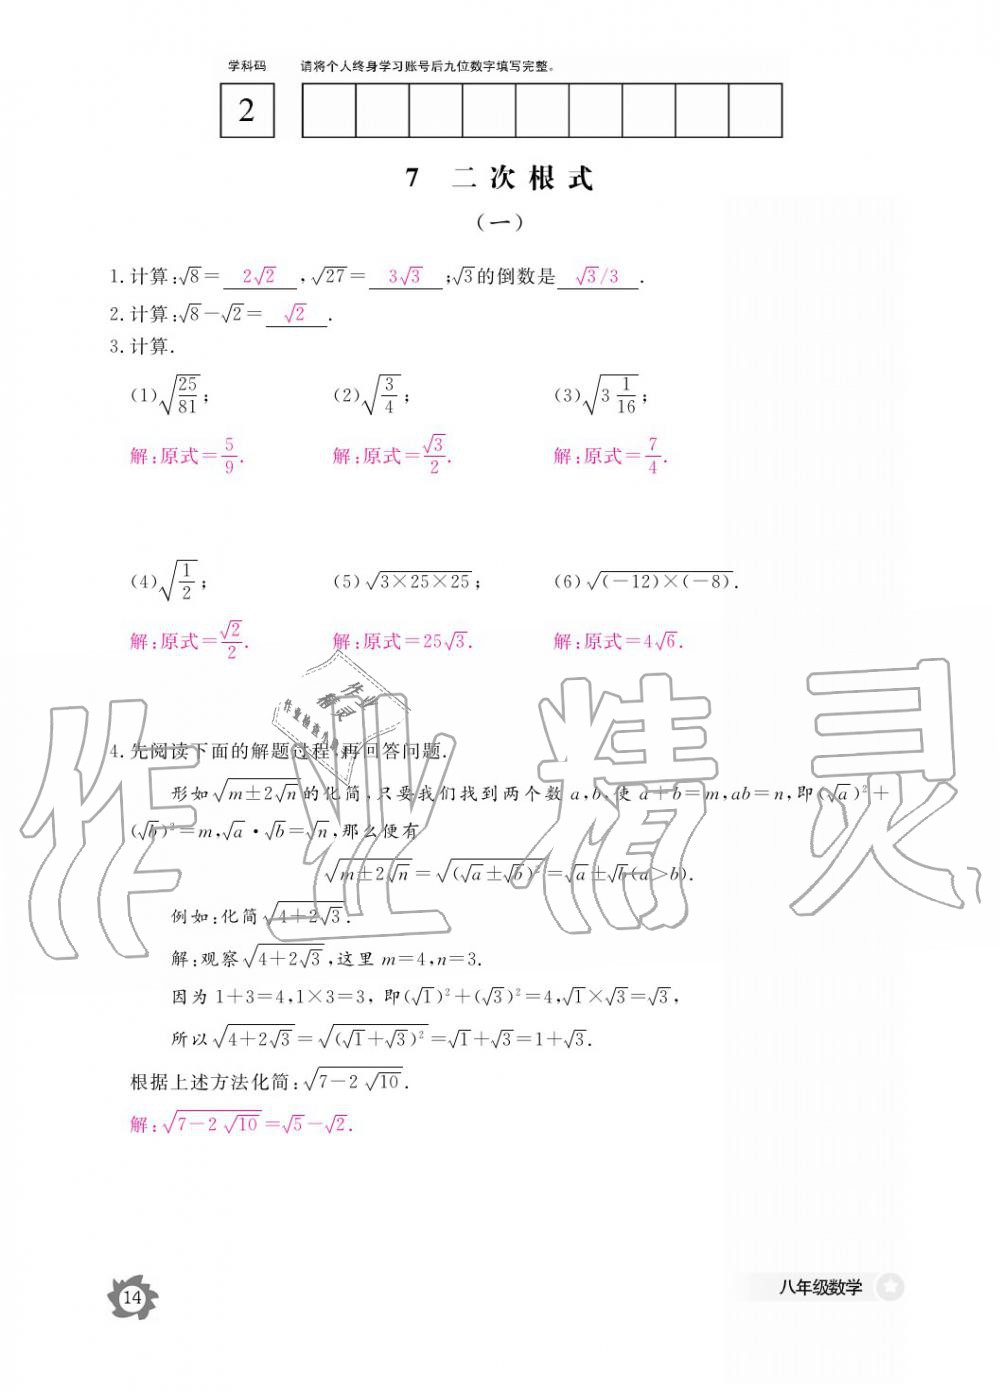 学科码 请将个人终身学习账号后九位数字填写完整。
2
7 二次根式
(一)
1.计算:√8= 2√2 ,√27= 3√3 ;√3的倒数是 √3/3 .
2.计算:√8-√2= √2 .
3.计算.
(1)√(25/81); (2)√(3/4); (3)√(3 1/16);
解:原式=5/9. 解:原式=√3/2. 解:原式=7/4.
(4)√(1/2); (5)√(3×25×25); (6)√((-12)×(-8)).
解:原式=√2/2. 解:原式=25√3. 解:原式=4√6.
4.先阅读下面的解题过程,再回答问题.
形如√(m±2√n)的化简,只要我们找到两个数a,b,使a+b=m,ab=n,即(√a)²+
(√b)²=m,√a·√b=√n,那么便有
√(m±2√n)=√((√a±√b)²)=√a±√b(a>b).
例如:化简√(4+2√3).
解:观察√(4+2√3),这里m=4,n=3.
因为1+3=4,1×3=3,即(√1)²+(√3)²=4,√1×√3=√3,
所以√(4+2√3)=√((√1+√3)²)=√1+√3=1+√3.
根据上述方法化简:√(7-2√10).
解:√(7-2√10)=√5-√2.
14
八年级数学
作业精灵
作业
精灵
作业检查小